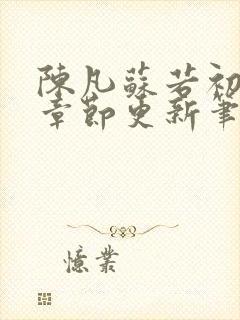 陳凡蘇若初
章節更新筆
憶業